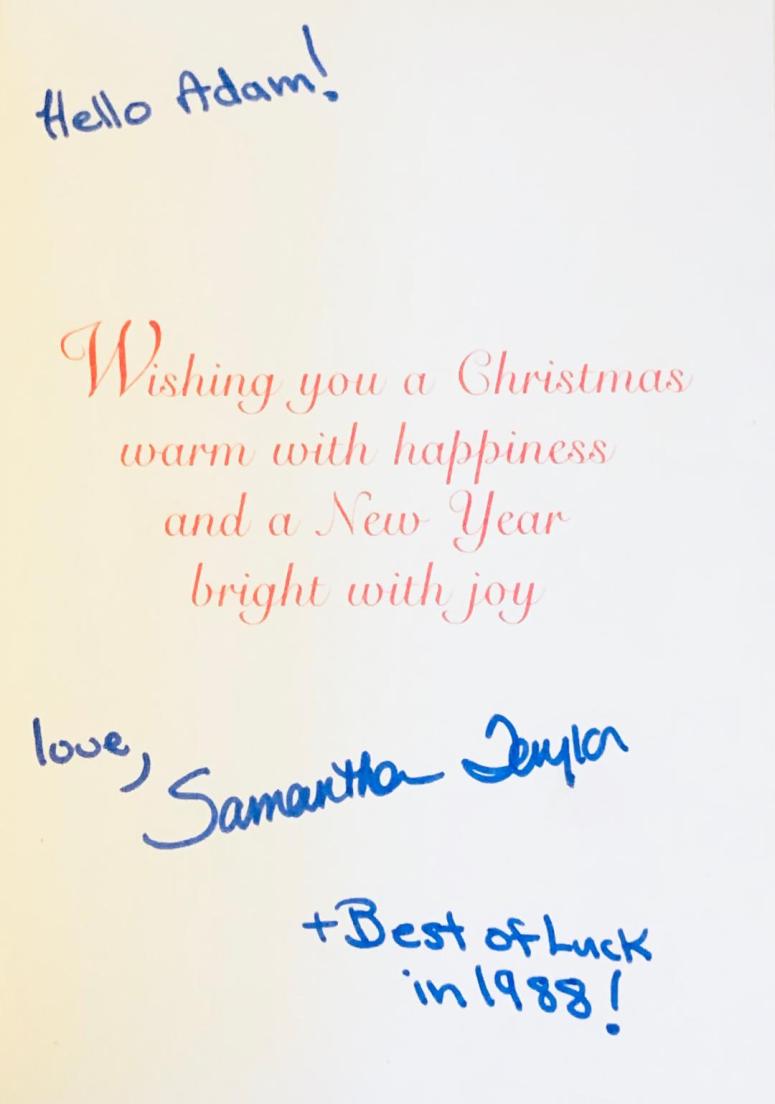 Hello Adam!
Wishing you a Christmas
warm with happiness
and a New Year
bright with joy
love,
Samantha Taylor
+ Best of Luck
in 1988!